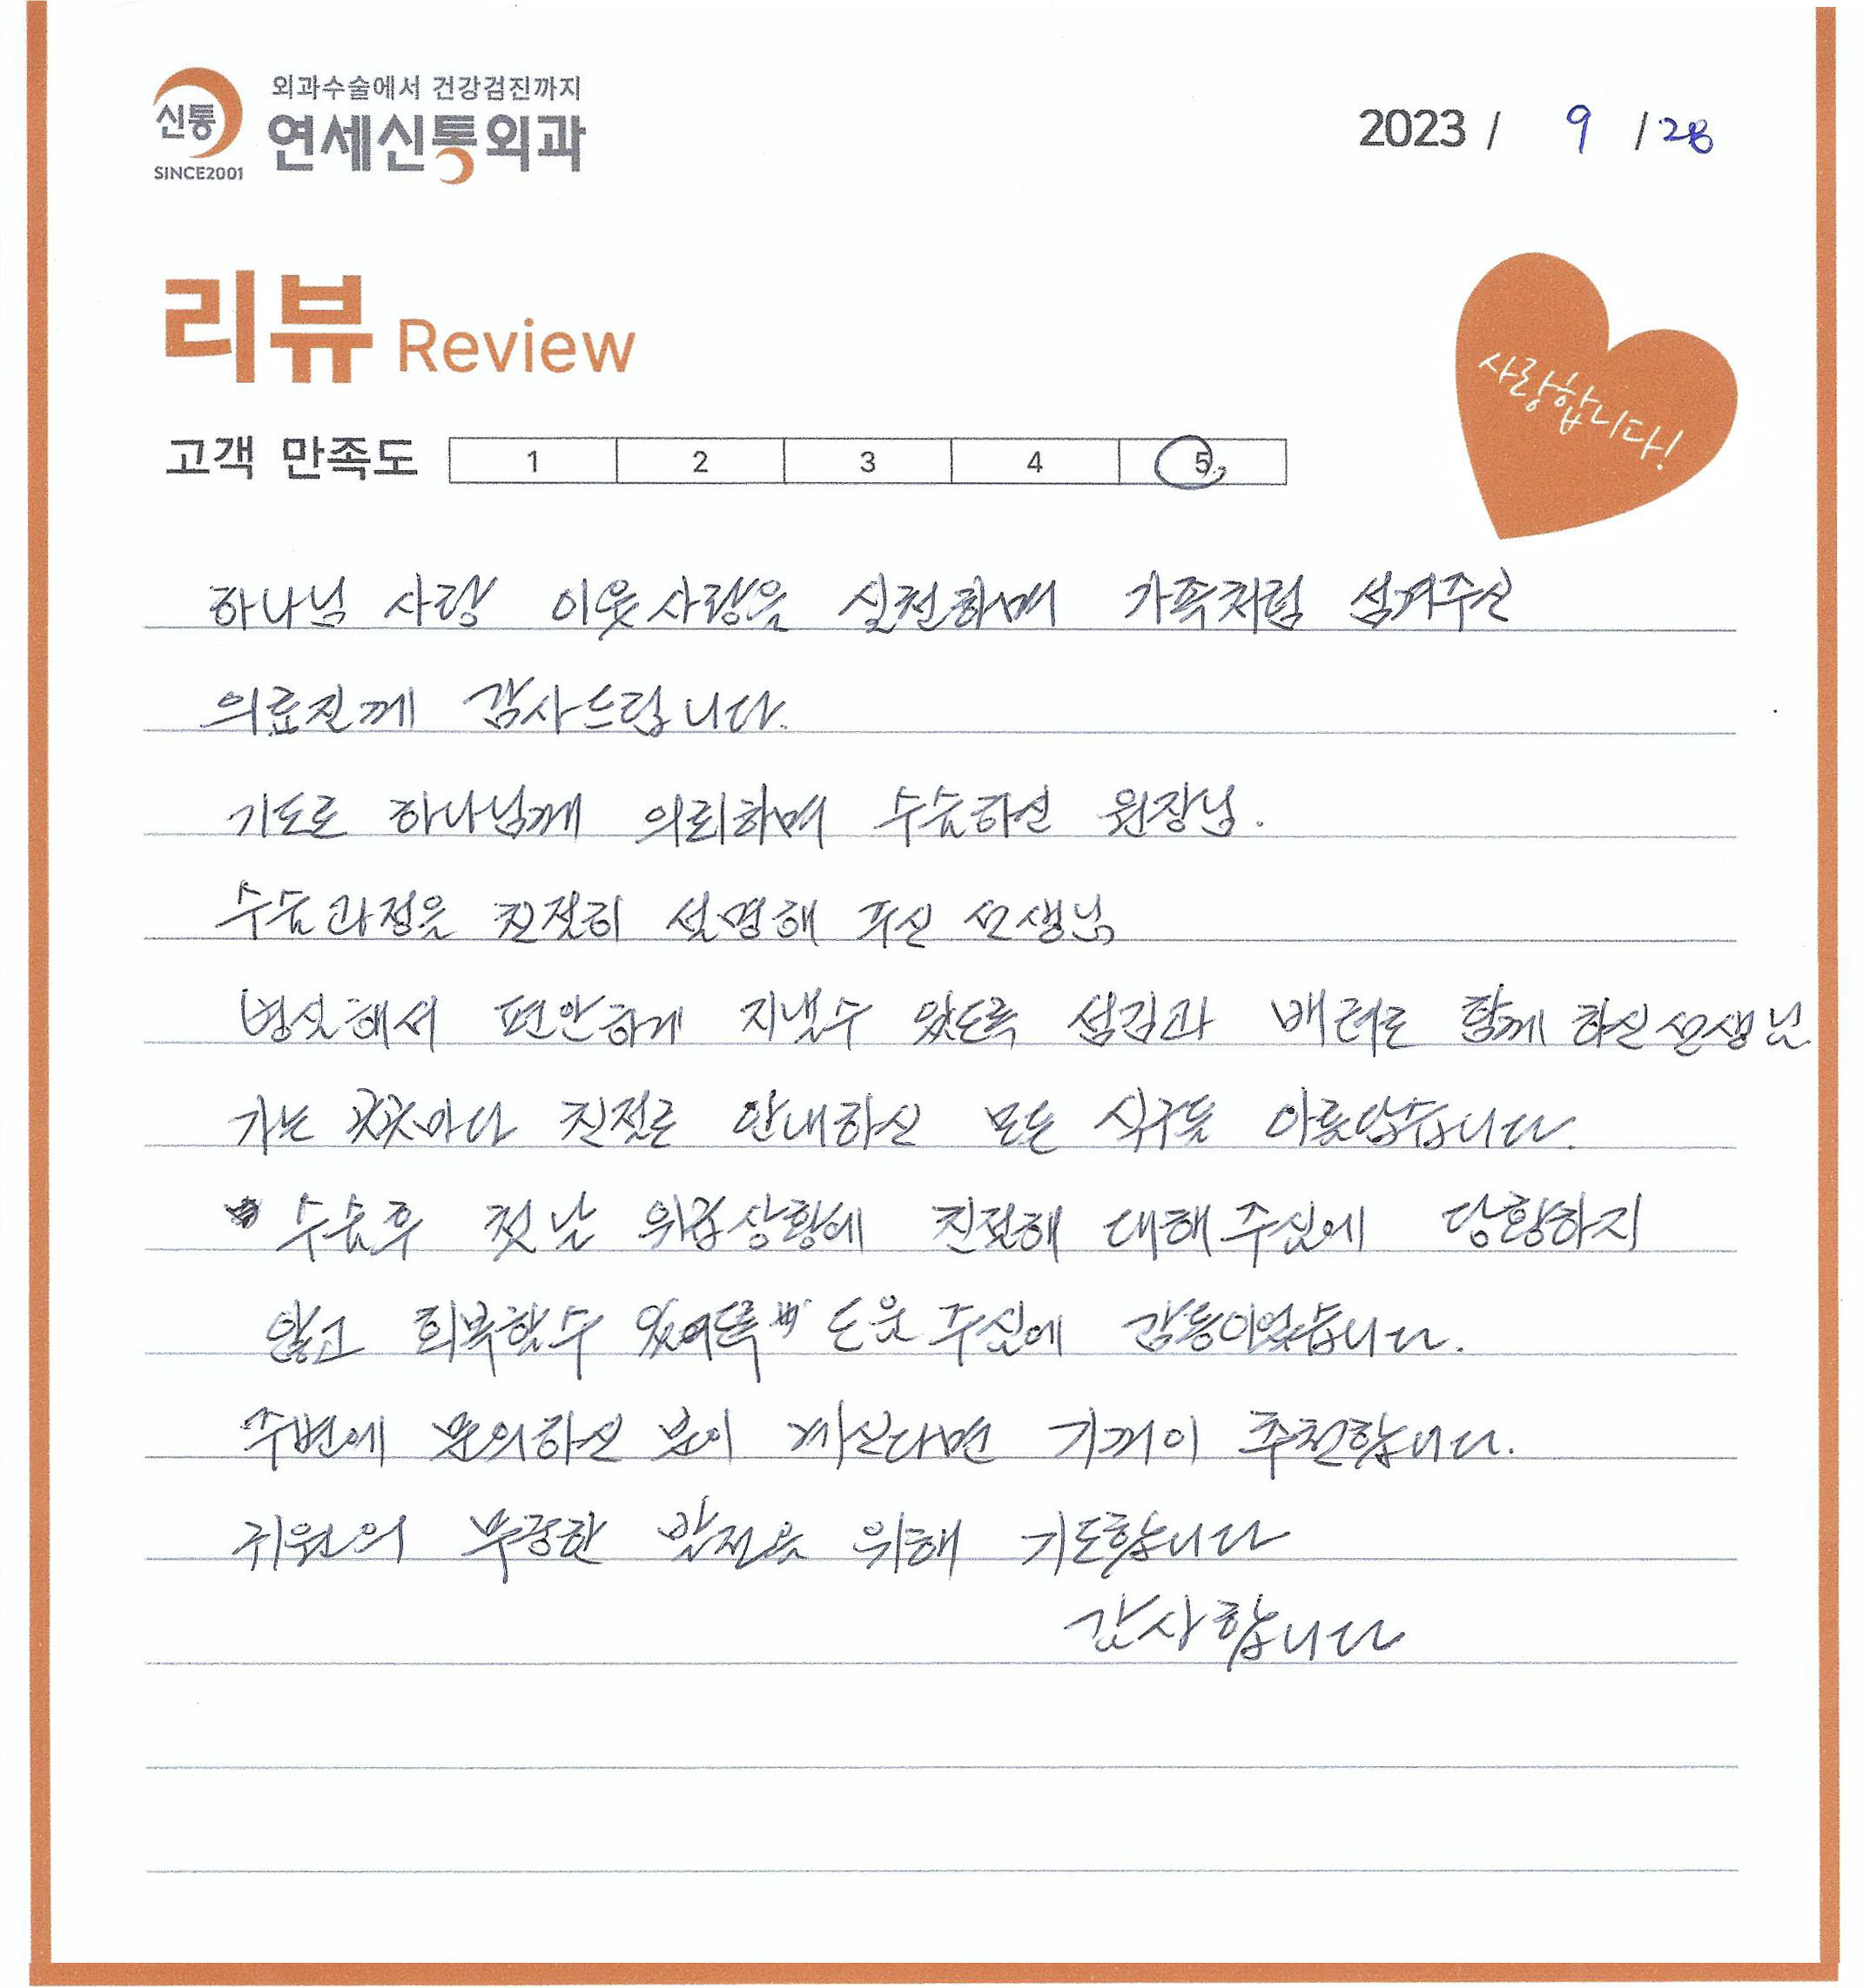 신통
SINCE2001
외과수술에서 건강검진까지
연세신통외과
2023 / 9 / 28
리뷰 Review
사랑합니다!
고객 만족도 1 2 3 4 5
하나님 사랑 이웃사랑을 실천하며 가족처럼 섬겨주신
의료진께 감사드립니다.
기도로 하나님께 의뢰하며 수술하신 원장님.
수술과정을 친절히 설명해 주신 선생님
병실에서 편안하게 지낼수 있도록 섬김과 배려로 함께 하신 선생님
가는 곳곳마다 친절로 안내하신 모든 식구들 아름답습니다.
수술후 첫날 위급상황에 친절해 대해 주심에 당황하지
않고 회복할수 도움 주심에 감동이었습니다.
주변에 문의하신 분이 계신다면 기꺼이 추천합니다.
귀원의 무궁한 발전을 위해 기도합니다
감사합니다